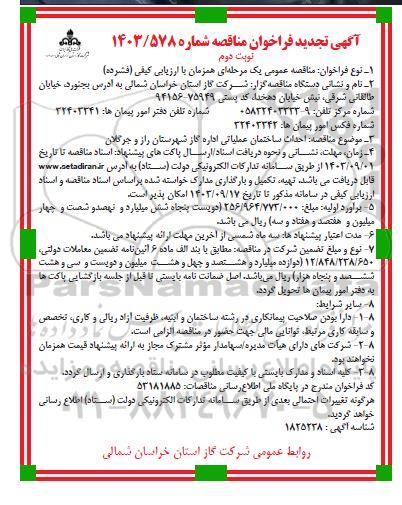 آگهی تجدید فراخوان مناقصه شماره ۱۴۰۳/۵۷۸
نوبت دوم
۱ـ نوع فراخوان: مناقصه عمومی یک مرحله‌ای همزمان با ارزیابی کیفی (فشرده)
۲ـ نام و نشانی دستگاه مناقصه گزار: شرکت گاز استان خراسان شمالی به آدرس بجنورد، خیابان
طالقانی شرقی، نبش خیابان دهخدا، کد پستی ۷۵۹۴۹-۹۴۱۵۶
شماره مرکز تلفن: ۹-۰۵۸۳۲۴۰۳۳۳۳ شماره تلفن دفتر امور پیمان ها: ۳۲۴۰۳۳۴۱
شماره فکس امور پیمان ها: ۳۲۴۰۳۳۴۲
۳ـ موضوع مناقصه: احداث ساختمان عملیاتی اداره گاز شهرستان راز و جرگلان
۴ـ زمان، مهلت، نشانی و نحوه دریافت اسناد/ارسال پاکت های پیشنهاد: اسناد مناقصه تا تاریخ
۱۴۰۳/۰۹/۰۱ از طریق سامانه تدارکات الکترونیکی دولت (ستاد) به آدرس www.setadiran.ir
قابل دریافت می باشد. تهیه، تکمیل و بارگذاری مدارک خواسته شده براساس اسناد مناقصه و اسناد
ارزیابی کیفی در سامانه مذکور تا تاریخ ۱۴۰۳/۰۹/۱۷ امکان پذیر است.
۵ـ برآورد اولیه: مبلغ: ۲۵۶/۹۶۴/۷۷۳/۰۰۰ (دویست پنجاه شش میلیارد و نهصدو شصت و چهار
میلیون و هفتصد و هفتاد و سه) ریال می باشد.
۶ـ مدت اعتبار پیشنهاد ها: سه ماه شمسی از آخرین مهلت ارائه پیشنهاد می باشد.
۷ـ نوع و مبلغ تضمین شرکت در مناقصه: مطابق با بند الف ماده ۶ آئین‌نامه تضمین معاملات دولتی،
۱۲/۸۴۸/۲۳۸/۶۵۰ (دوازده میلیارد و هشتصد و چهل و هشت میلیون و دویست و سی و هشت
ششصد و پنجاه هزار) ریال می‌باشد. اصل ضمانت نامه بایستی تا قبل از جلسه بازگشایی پاکت ها
به دفتر امور پیمان ها تحویل گردد.
۸ـ سایر شرایط:
۱-۸ـ دارا بودن صلاحیت پیمانکاری در رشته ساختمان و ابنیه، ظرفیت آزاد ریالی و کاری، تخصص
و سابقه کاری مرتبط، توانایی مالی جهت حضور در مناقصه الزامی است.
۲-۸ـ شرکت های دارای هیأت مدیره/سهامدار مؤثر مشترک مجاز به ارائه پیشنهاد قیمت همزمان
نخواهند بود.
۳-۸ـ کلیه اسناد و مدارک بایستی با کیفیت مطلوب در سامانه ستاد بارگذاری و ارسال گردد.
کد فراخوان مندرج در پایگاه ملی اطلاع‌رسانی مناقصات: ۵۳۱۸۱۸۸۵
هرگونه تغییرات احتمالی بعدی از طریق سامانه تدارکات الکترونیکی دولت (ستاد) اطلاع رسانی
خواهد گردید.
شناسه آگهی : ۱۸۲۵۲۳۸
روابط عمومی شرکت گاز استان خراسان شمالی